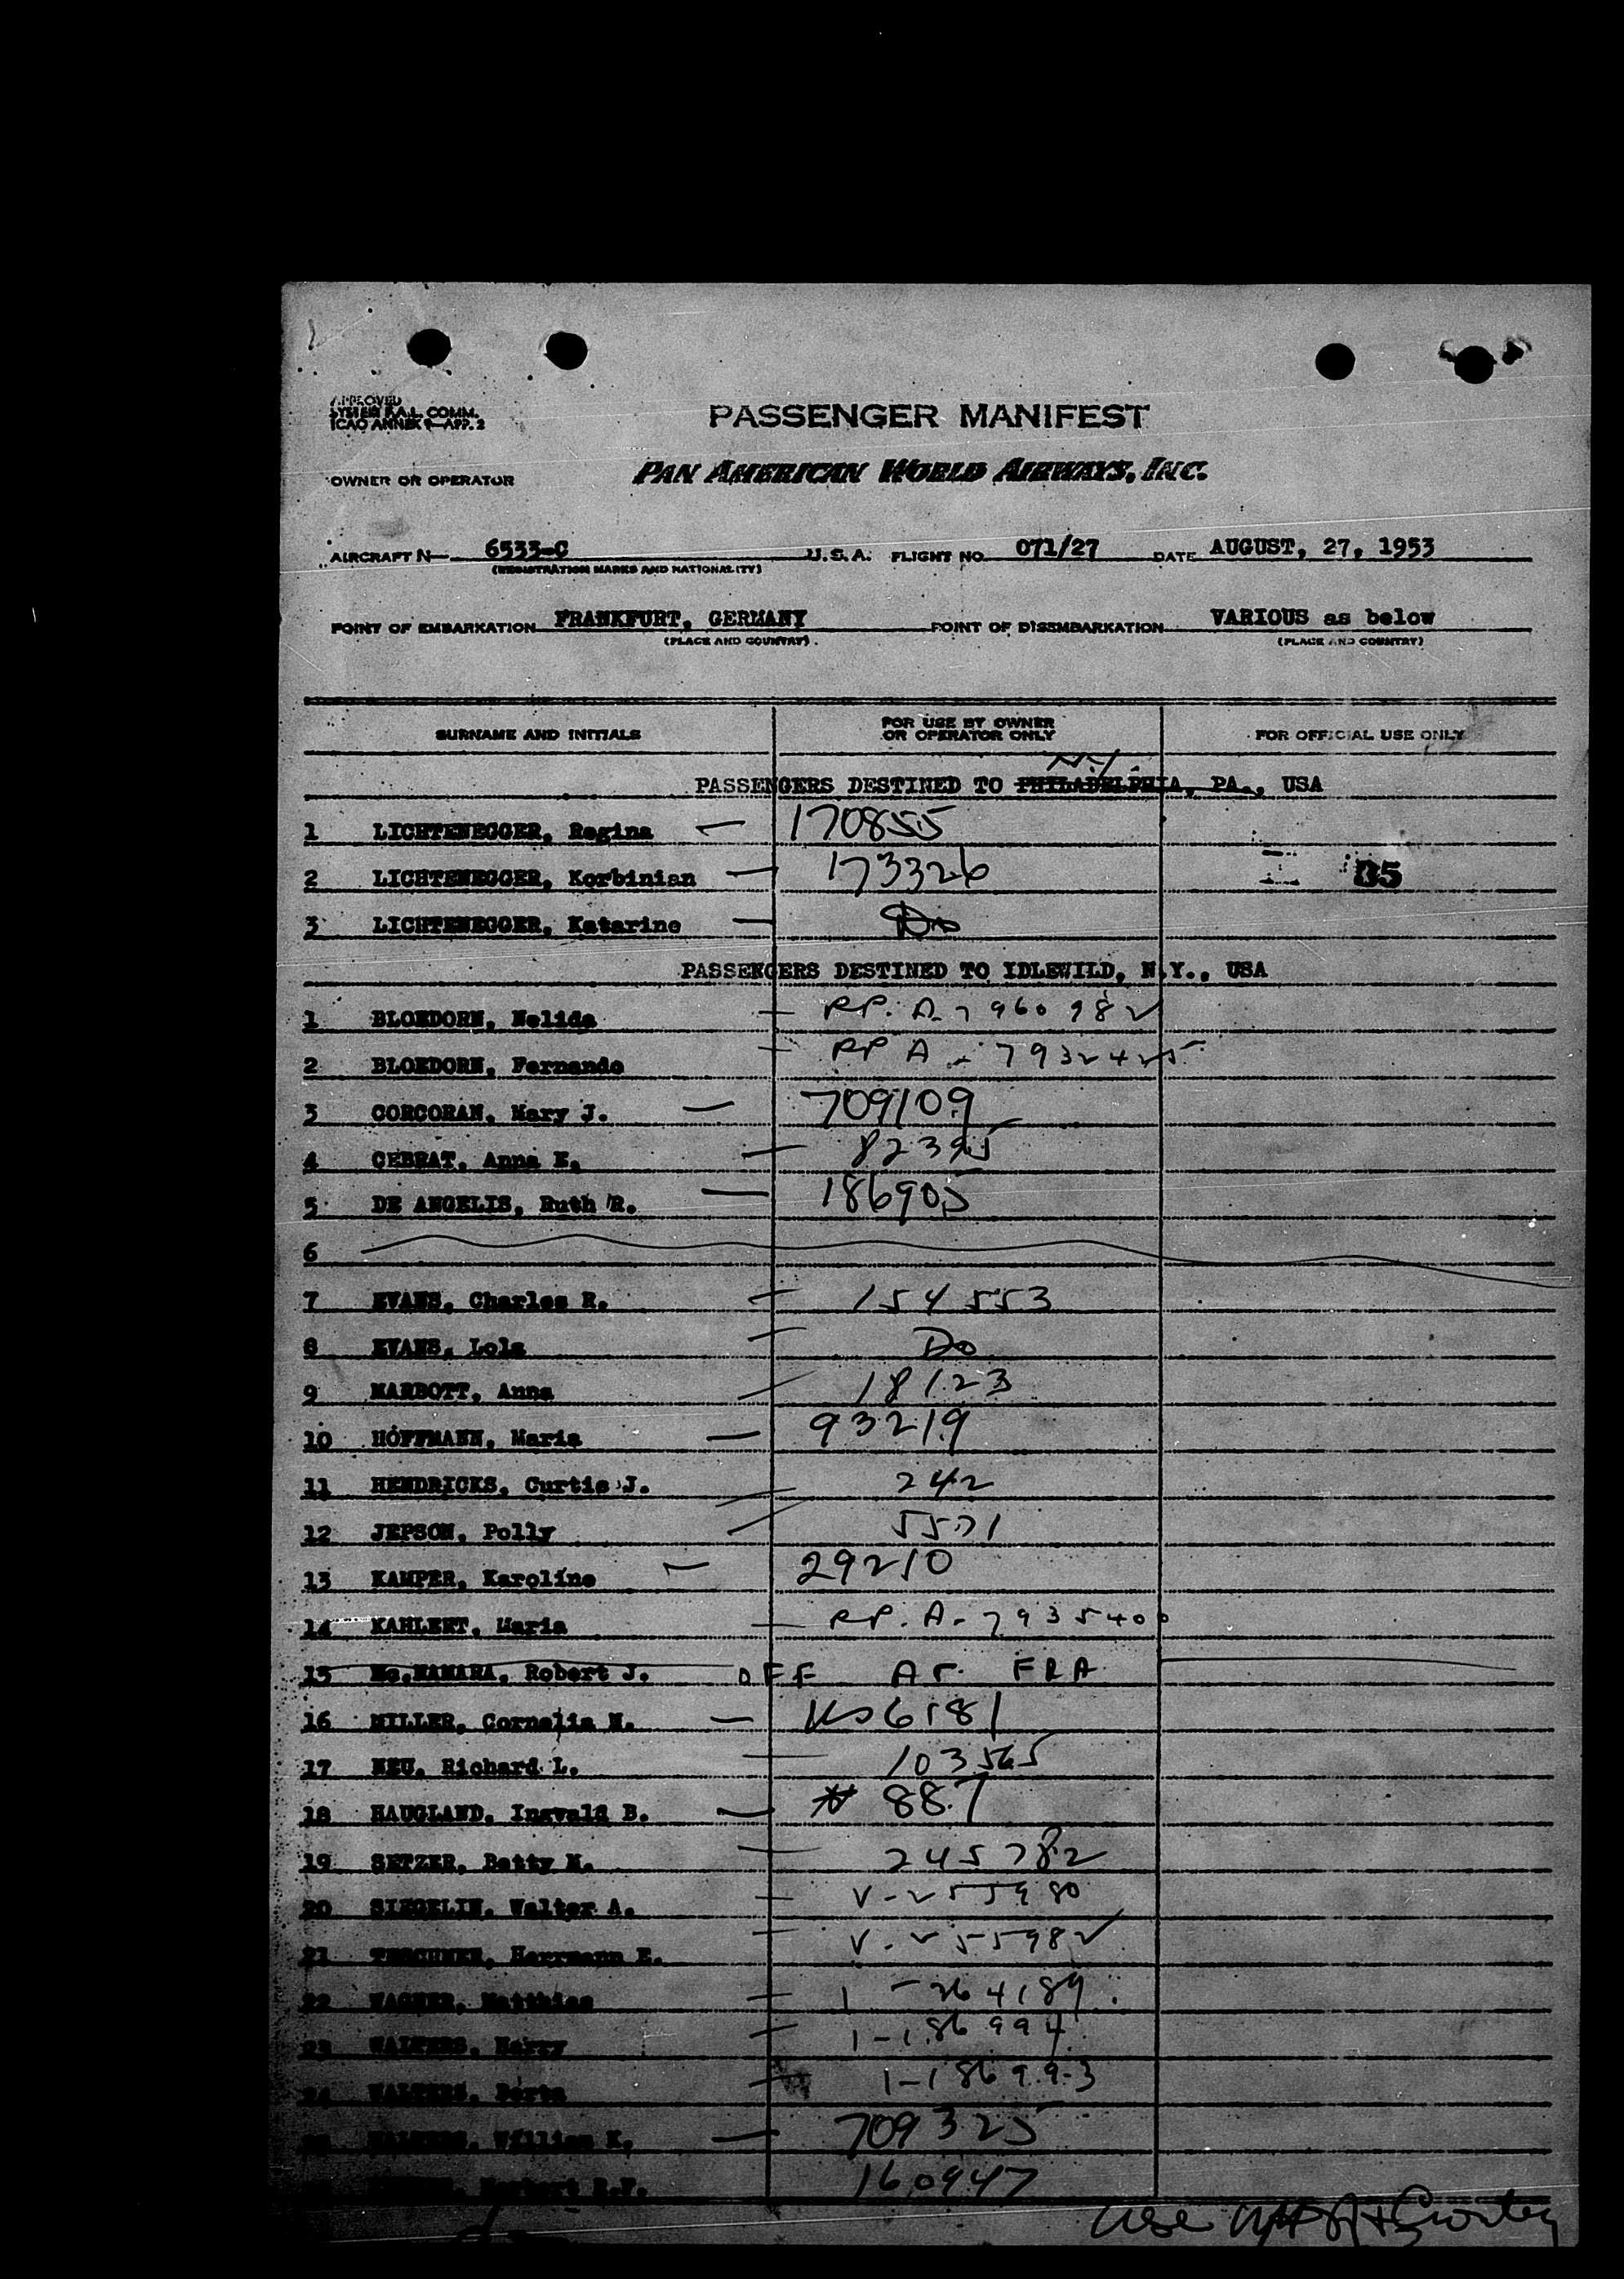 APPROVED
SYSTEM F.A.L. COMM.
ICAO ANNEX 9—APP. 2
PASSENGER MANIFEST
OWNER OR OPERATOR PAN AMERICAN WORLD AIRWAYS, INC.
AIRCRAFT N— 6533-C U.S.A. FLIGHT NO. 071/27 DATE AUGUST, 27, 1953
(REGISTRATION MARKS AND NATIONALITY)
POINT OF EMBARKATION FRANKFURT, GERMANY POINT OF DISEMBARKATION VARIOUS as below
(PLACE AND COUNTRY) (PLACE AND COUNTRY)
SURNAME AND INITIALS FOR USE BY OWNER OR OPERATOR ONLY FOR OFFICIAL USE ONLY
N.Y.
PASSENGERS DESTINED TO PHILADELPHIA, PA., USA
1 LICHTENEGGER, Regina — 170855
2 LICHTENEGGER, Korbinian — 173326 35
3 LICHTENEGGER, Katarine — Do
PASSENGERS DESTINED TO IDLEWILD, N.Y., USA
1 BLOEDORN, Nelida — RP. A-7960982
2 BLOEDORN, Fernando — RP A - 7932425
3 CORCORAN, Mary J. — 709109
4 CEBRAT, Anna E. — 82395
5 DE ANGELIS, Ruth R. — 186905
6
7 EVANS, Charles R. — 154553
8 EVANS, Lola — Do
9 MARBOTT, Anna — 18123
10 HOFFMANN, Maria — 93219
11 HENDRICKS, Curtis J. — 242
12 JEPSON, Polly — 5571
13 KAMPER, Karoline — 29210
14 KAHLERT, Maria — RP. A-7935400
15 Mc.NAMARA, Robert J. OFF AT FRA
16 MILLER, Cornelia M. —
17 NEU, Richard L. — 103565
18 HAUGLAND, Ingvald B. — 887
19 SETZER, Betty M. — 245782
20 SIEGELIN, Walter A. — V-255980
21 Herrmann E. — V-255982
22 WAGNER, Matthias — 1-264189
23 WALTERS, Harry — 1-186994
24 WALTERS, — 1-186993
William K. — 709325
160947
use